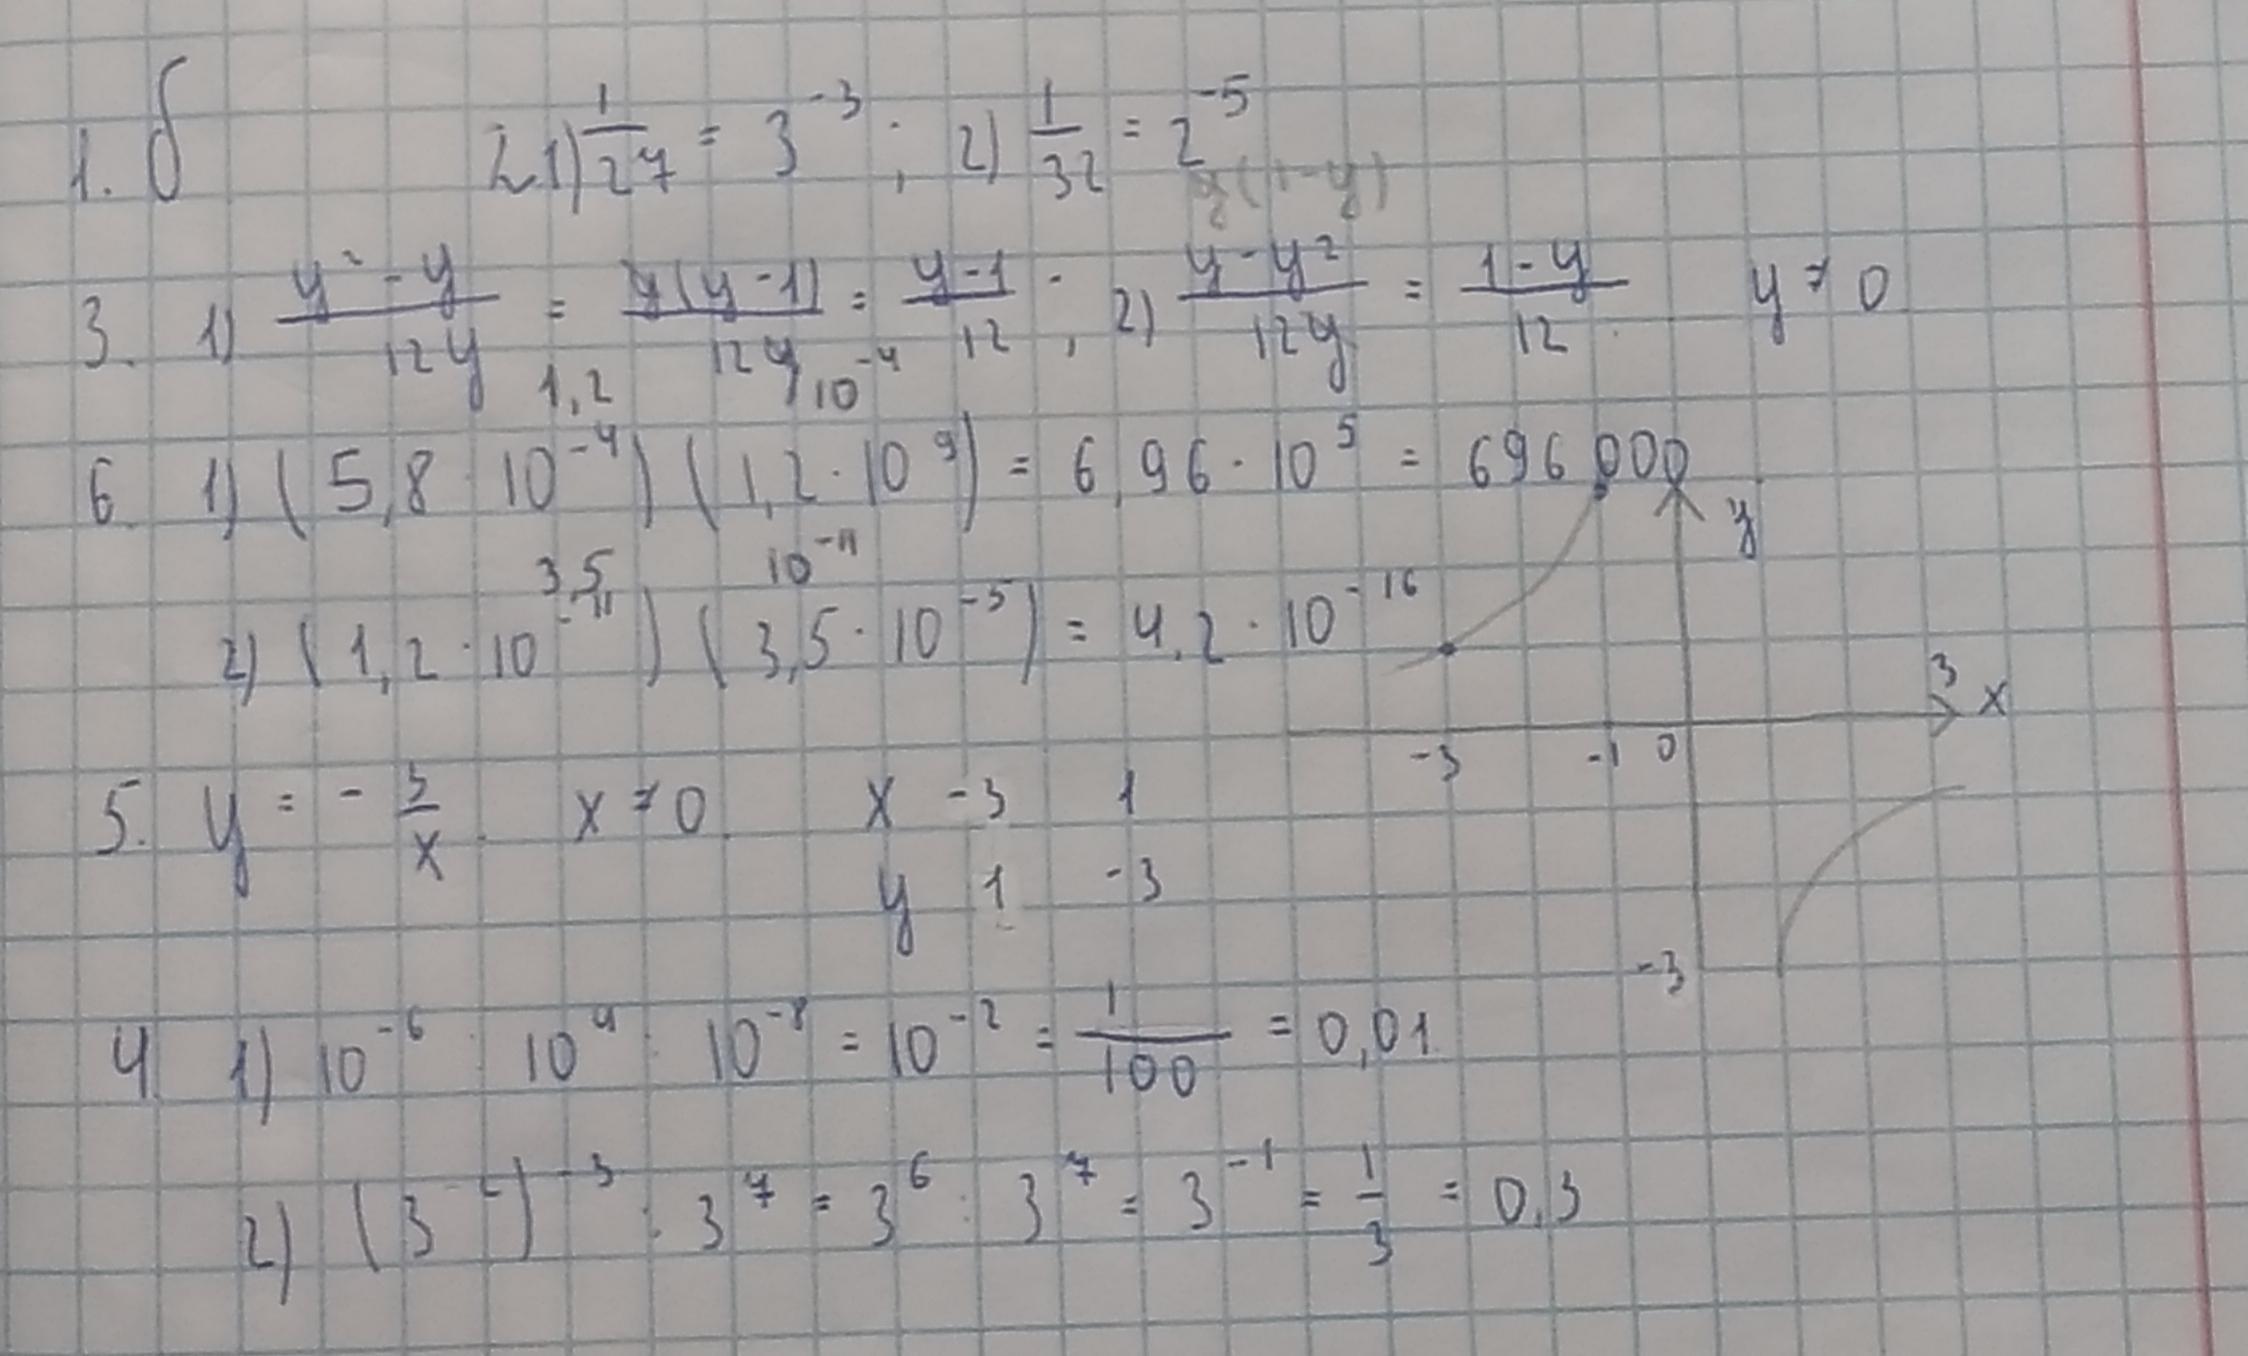 1. б 2. 1) 1/27 = 3^-3 ; 2) 1/32 = 2^-5
y(1-y)
3. 1) (y² - y)/(12y) = y(y-1)/(12y) = (y-1)/12 ; 2) (y-y²)/(12y) = (1-y)/12 y ≠ 0
1,2 10^-4
6. 1) (5,8 · 10^-4) (1,2 · 10^9) = 6,96 · 10^5 = 696000
y
3,5 10^-11
2) (1,2 · 10^-11) (3,5 · 10^-5) = 4,2 · 10^-16
3 x
-3 -1 0
5. y = - 3/x x ≠ 0. x -3 1
y 1 -3
-3
4. 1) 10^-6 · 10^4 : 10^-8 = 10^-2 = 1/100 = 0,01
2) (3^-2)^-3 : 3^7 = 3^6 : 3^7 = 3^-1 = 1/3 = 0,3